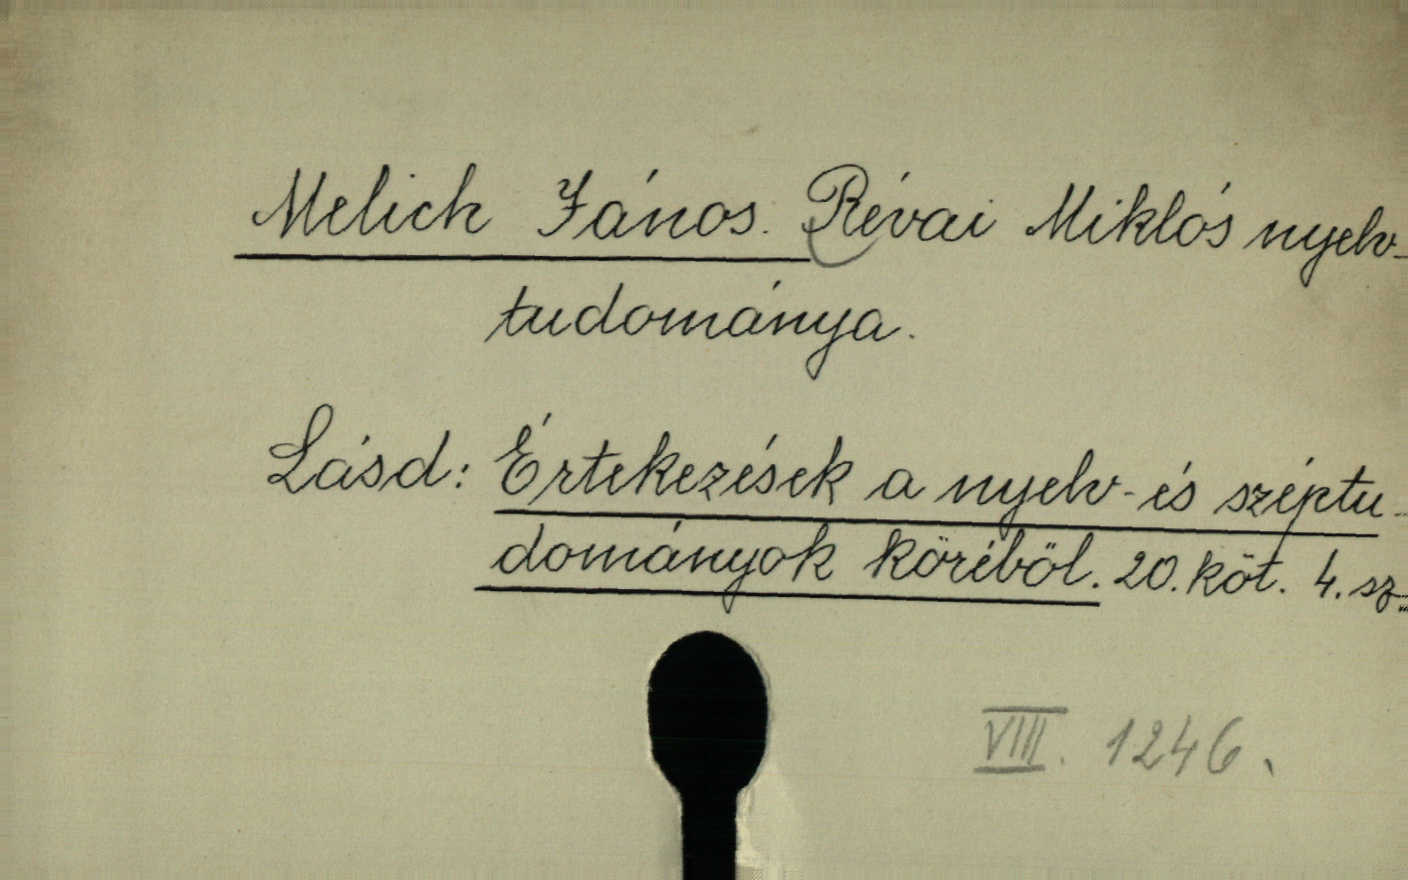 Melich János. Révai Miklós nyelv-
tudománya.
Lásd: Értekezések a nyelv- és széptu-
dományok köréböl. 20. köt. 4. sz.
VIII. 1246.